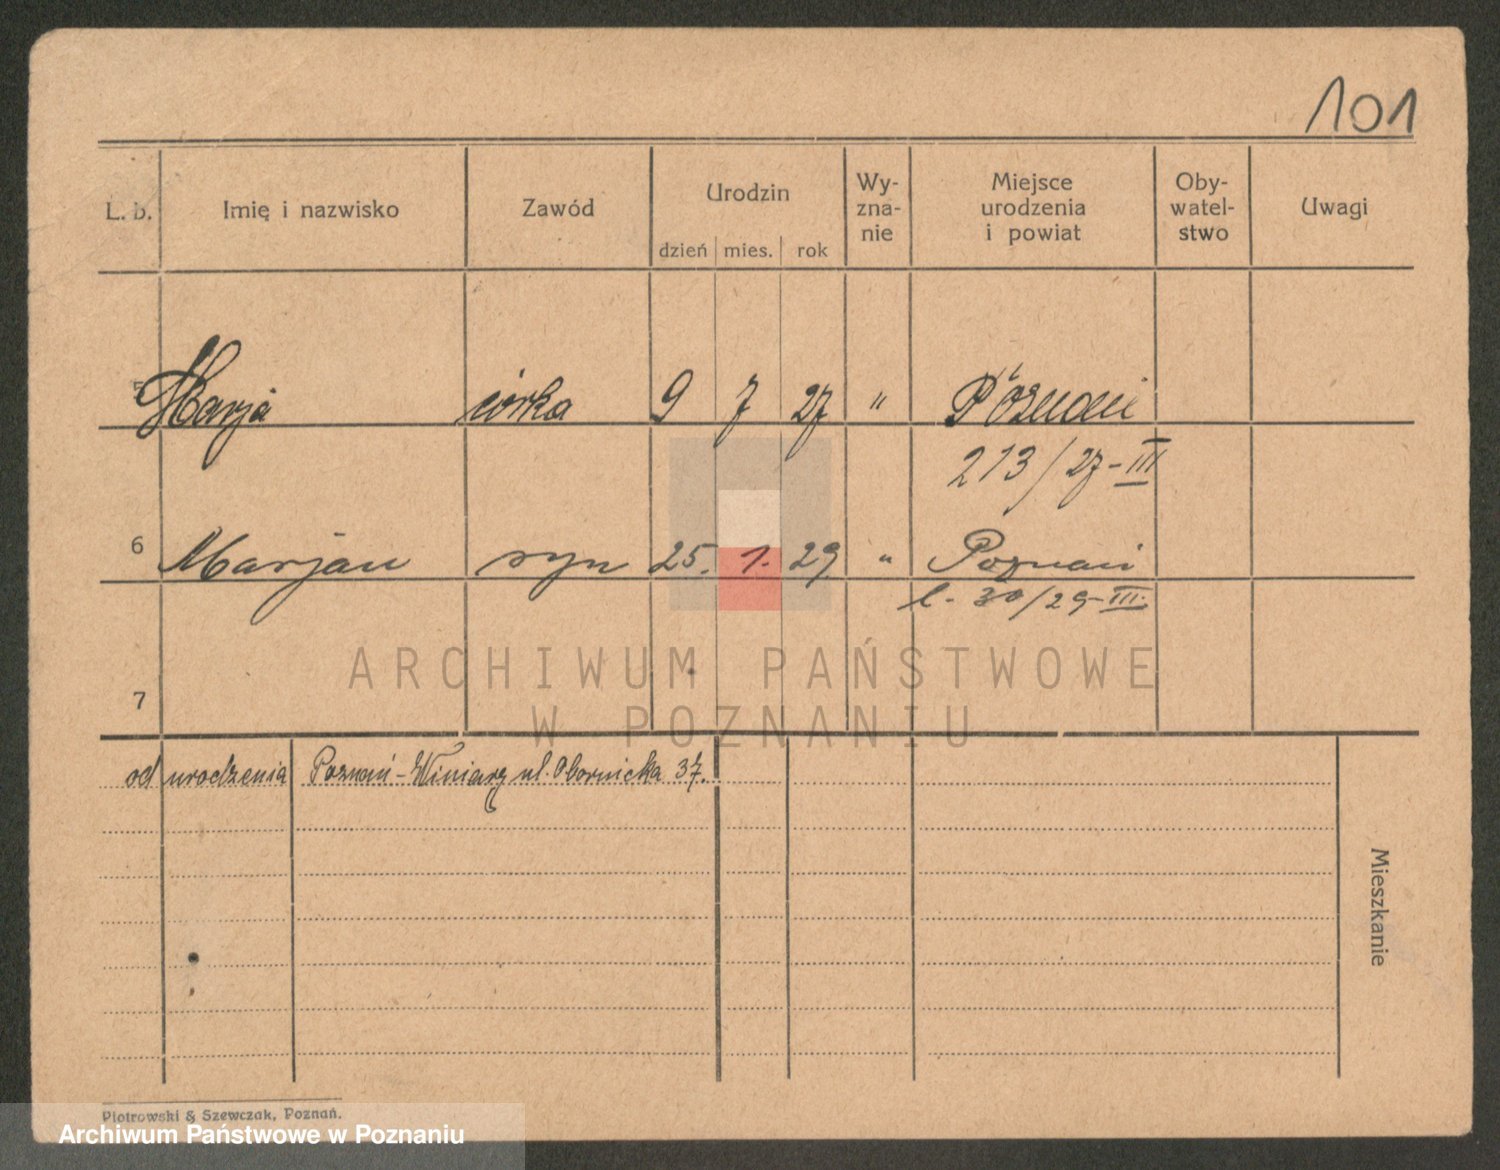 101
L. b. Imię i nazwisko Zawód Urodzin Wy- Miejsce Oby- Uwagi
zna- urodzenia watel-
nie i powiat stwo
dzień mies. rok
5 Marja córka 9 7 27 " Poznań
213/27-III
6 Marjan syn 25. 1. 29 " Poznań
l. 30/29-III.
ARCHIWUM PAŃSTWOWE
7
W POZNANIU
od urodzenia Poznań-Winiary ul. Obornicka 37.
Mieszkanie
Piotrowski & Szewczak, Poznań.
Archiwum Państwowe w Poznaniu